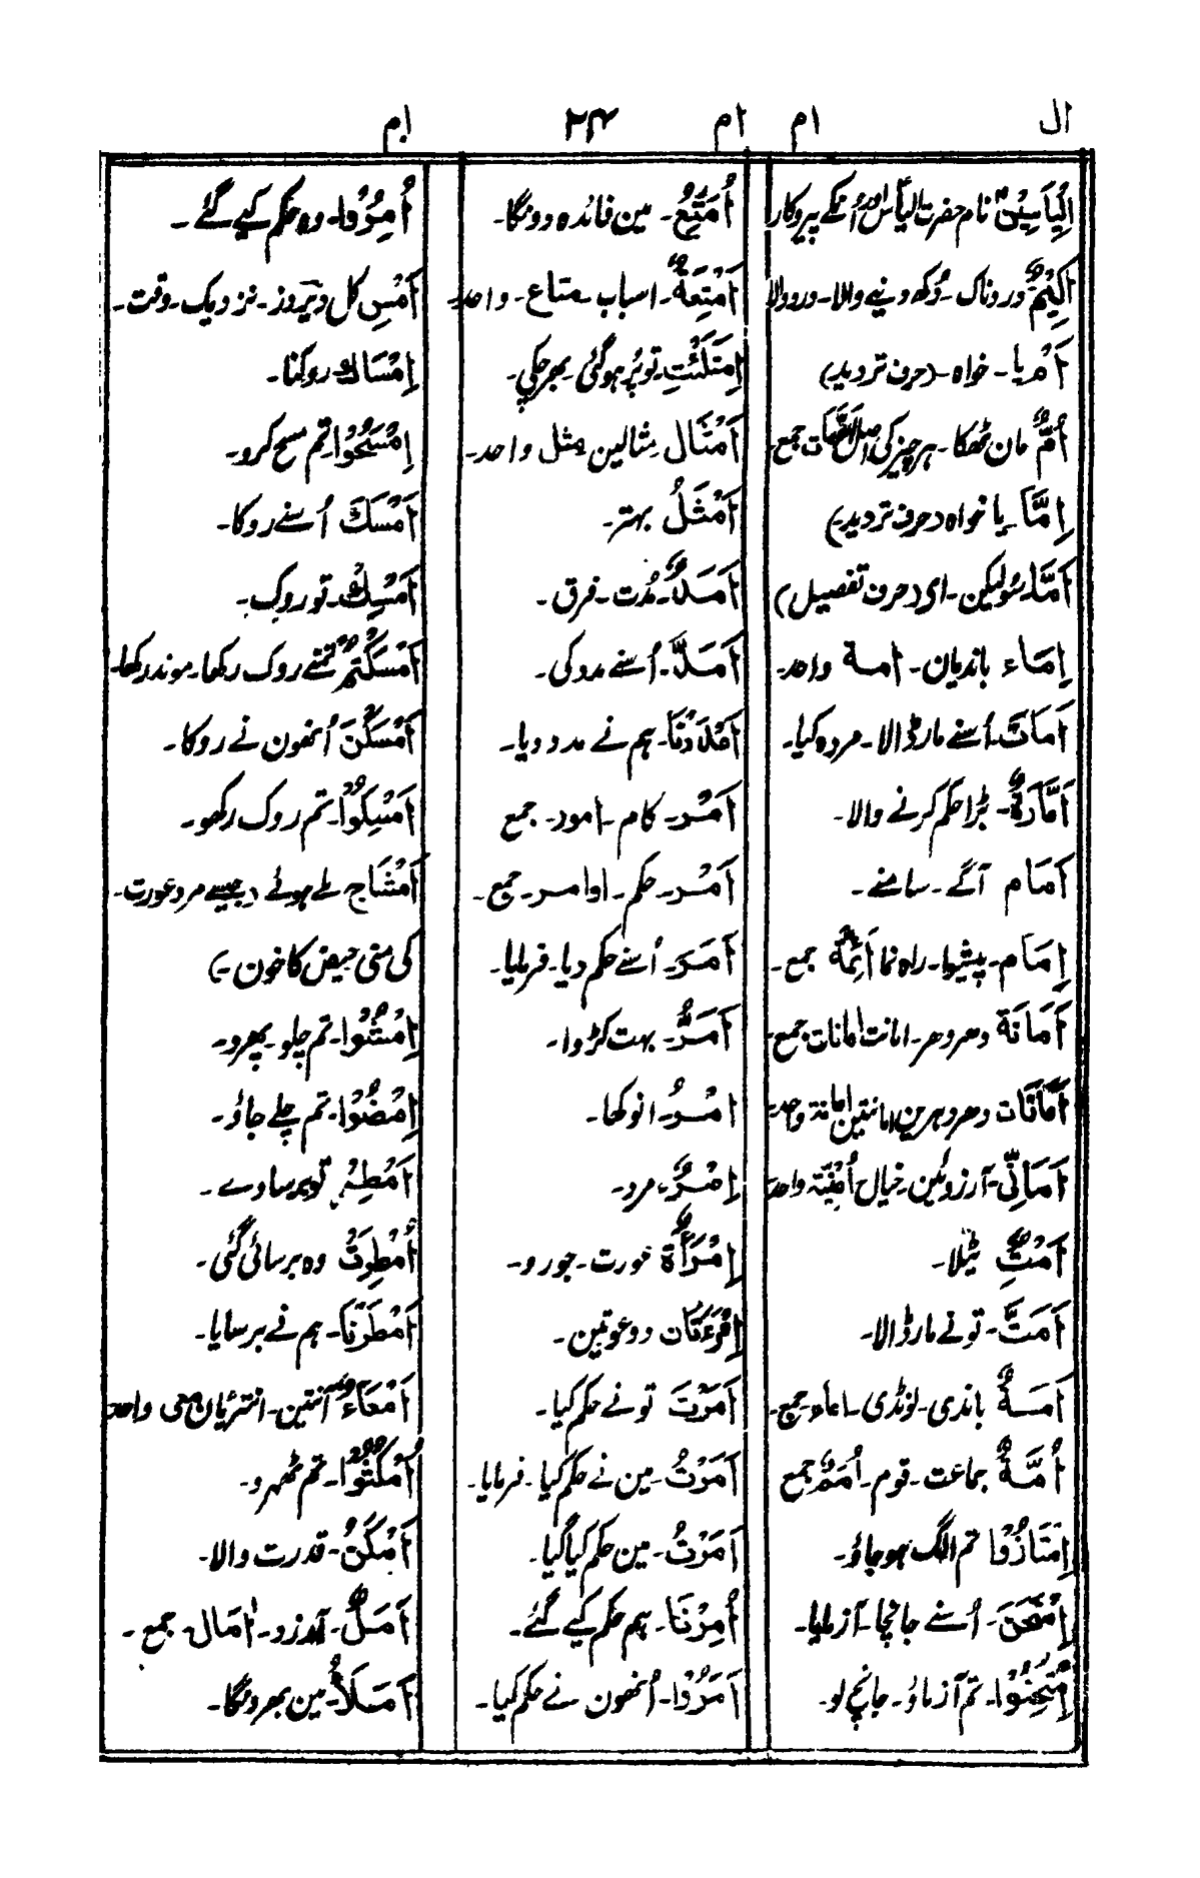 ال ام ام ۲۴ ام
اِلْیَاسِیْنَ نام حضرت الیاسؑ اور اُنکے پیروکار
اَلِیْمٌ دردناک۔ دُکھ دینے والا۔ درد والا
اَمْ یا۔ خواہ۔ (حرف تردید)
اُمٌّ مان ٹھکا۔ ہر چیز کی اصل اُمَّهَات جمع۔
اِمَّا یا خواہ (حرف تردید)
اَمَّا۔ سُو لیکن۔ ای (حرف تفصیل)
اِمَاء باندیان۔ امة واحد۔
اَمَاتَ۔ اُسنے مار ڈالا۔ مردہ کیا۔
اَمَّارَةٌ۔ بڑا حکم کرنے والا۔
اَمَام آگے۔ سامنے۔
اِمَام۔ پیشوا۔ راہ نما اَئِمَّة جمع۔
اَمَانَة دھروھر۔ امانت امانات جمع۔
اَمَانَات دھروہرین امانتین امانة واحد۔
اَمَانِیّ۔ آرزوئین۔ خیال اُمْنِیَّة واحد
اَمْتٌ ٹیلا۔
اَمَتَّ۔ تونے مار ڈالا۔
اَمَةٌ باندی۔ لونڈی۔ اماء جمع۔
اُمَّةٌ جماعت۔ قوم۔ اُمَمٌ جمع
اِمْتَازُوْا تم الگ ہو جاؤ۔
اِمْتَحَنَ۔ اُسنے جانچا۔ آزمایا۔
اِمْتَحِنُوْا۔ تم آزماؤ۔ جانچ لو۔
اُمَتِّعُ۔ مین فائدہ دونگا۔
اَمْتِعَةٌ۔ اسباب۔ متاع۔ واحد۔
اِمْتَلَئْتِ۔ تو پُر ہوگئی۔ بھر چکی۔
اَمْثَال مثالین مثل واحد۔
اَمْثَلُ بہتر۔
اَمَدٌ۔ مُدت۔ فرق۔
اَمَدَّ۔ اُسنے مدد کی۔
اَمْدَدْنَا۔ ہم نے مدد دیا۔
اَمْر۔ کام۔ امور۔ جمع
اَمْر۔ حکم۔ اوامر۔ جمع۔
اَمَرَ۔ اُسنے حکم دیا۔ فرمایا۔
اَمَرُّ۔ بہت کڑوا۔
اِمْرُ۔ انوکھا۔
اِمْرُءٌ۔ مرد۔
اِمْرَأَةٌ عورت۔ جورو۔
اِمْرَءَتَان دو عورتین۔
اَمَرْتَ تو نے حکم کیا۔
اَمَرْتُ۔ مین نے حکم کیا۔ فرمایا۔
اُمِرْتُ۔ مین حکم کیا گیا۔
اُمِرْنَا۔ ہم حکم کیے گئے۔
اَمَرُوْا۔ اُنھون نے حکم کیا۔
اُمِرُوْا۔ وہ حکم کیے گئے۔
اَمْسِ کل دیروز۔ نزدیک۔ وقت۔
اِمْسَاك روکنا۔
اِمْسَحُوْا تم مسح کرو۔
اَمْسَكَ اُسنے روکا۔
اَمْسِكْ۔ تو روک۔
اَمْسَكْتُمْ تمنے روک رکھا۔ موند رکھا۔
اَمْسَكْنَ اُنھون نے روکا۔
اَمْسِكُوْا۔ تم روک رکھو۔
اَمْشَاج ملے ہوئے (جیسے مرد عورت۔
کی منی حیض کا خون۔)
اِمْشُوْا۔ تم چلو۔ پھرو۔
اِمْضُوْا۔ تم چلے جاؤ۔
اَمْطِرْ تو برساوے۔
اُمْطِرَتْ وہ برسائی گئی۔
اَمْطَرْنَا۔ ہم نے برسایا۔
اَمْعَاءٌ آنتین۔ انتڑیان معی واحد
اُمْكُثُوْا۔ تم ٹھہرو۔
اَمْكَنَ۔ قدرت والا۔
اَمَلٌ۔ آرزو۔ اٰمال۔ جمع۔
اَمْلَأُ۔ مین بھرونگا۔